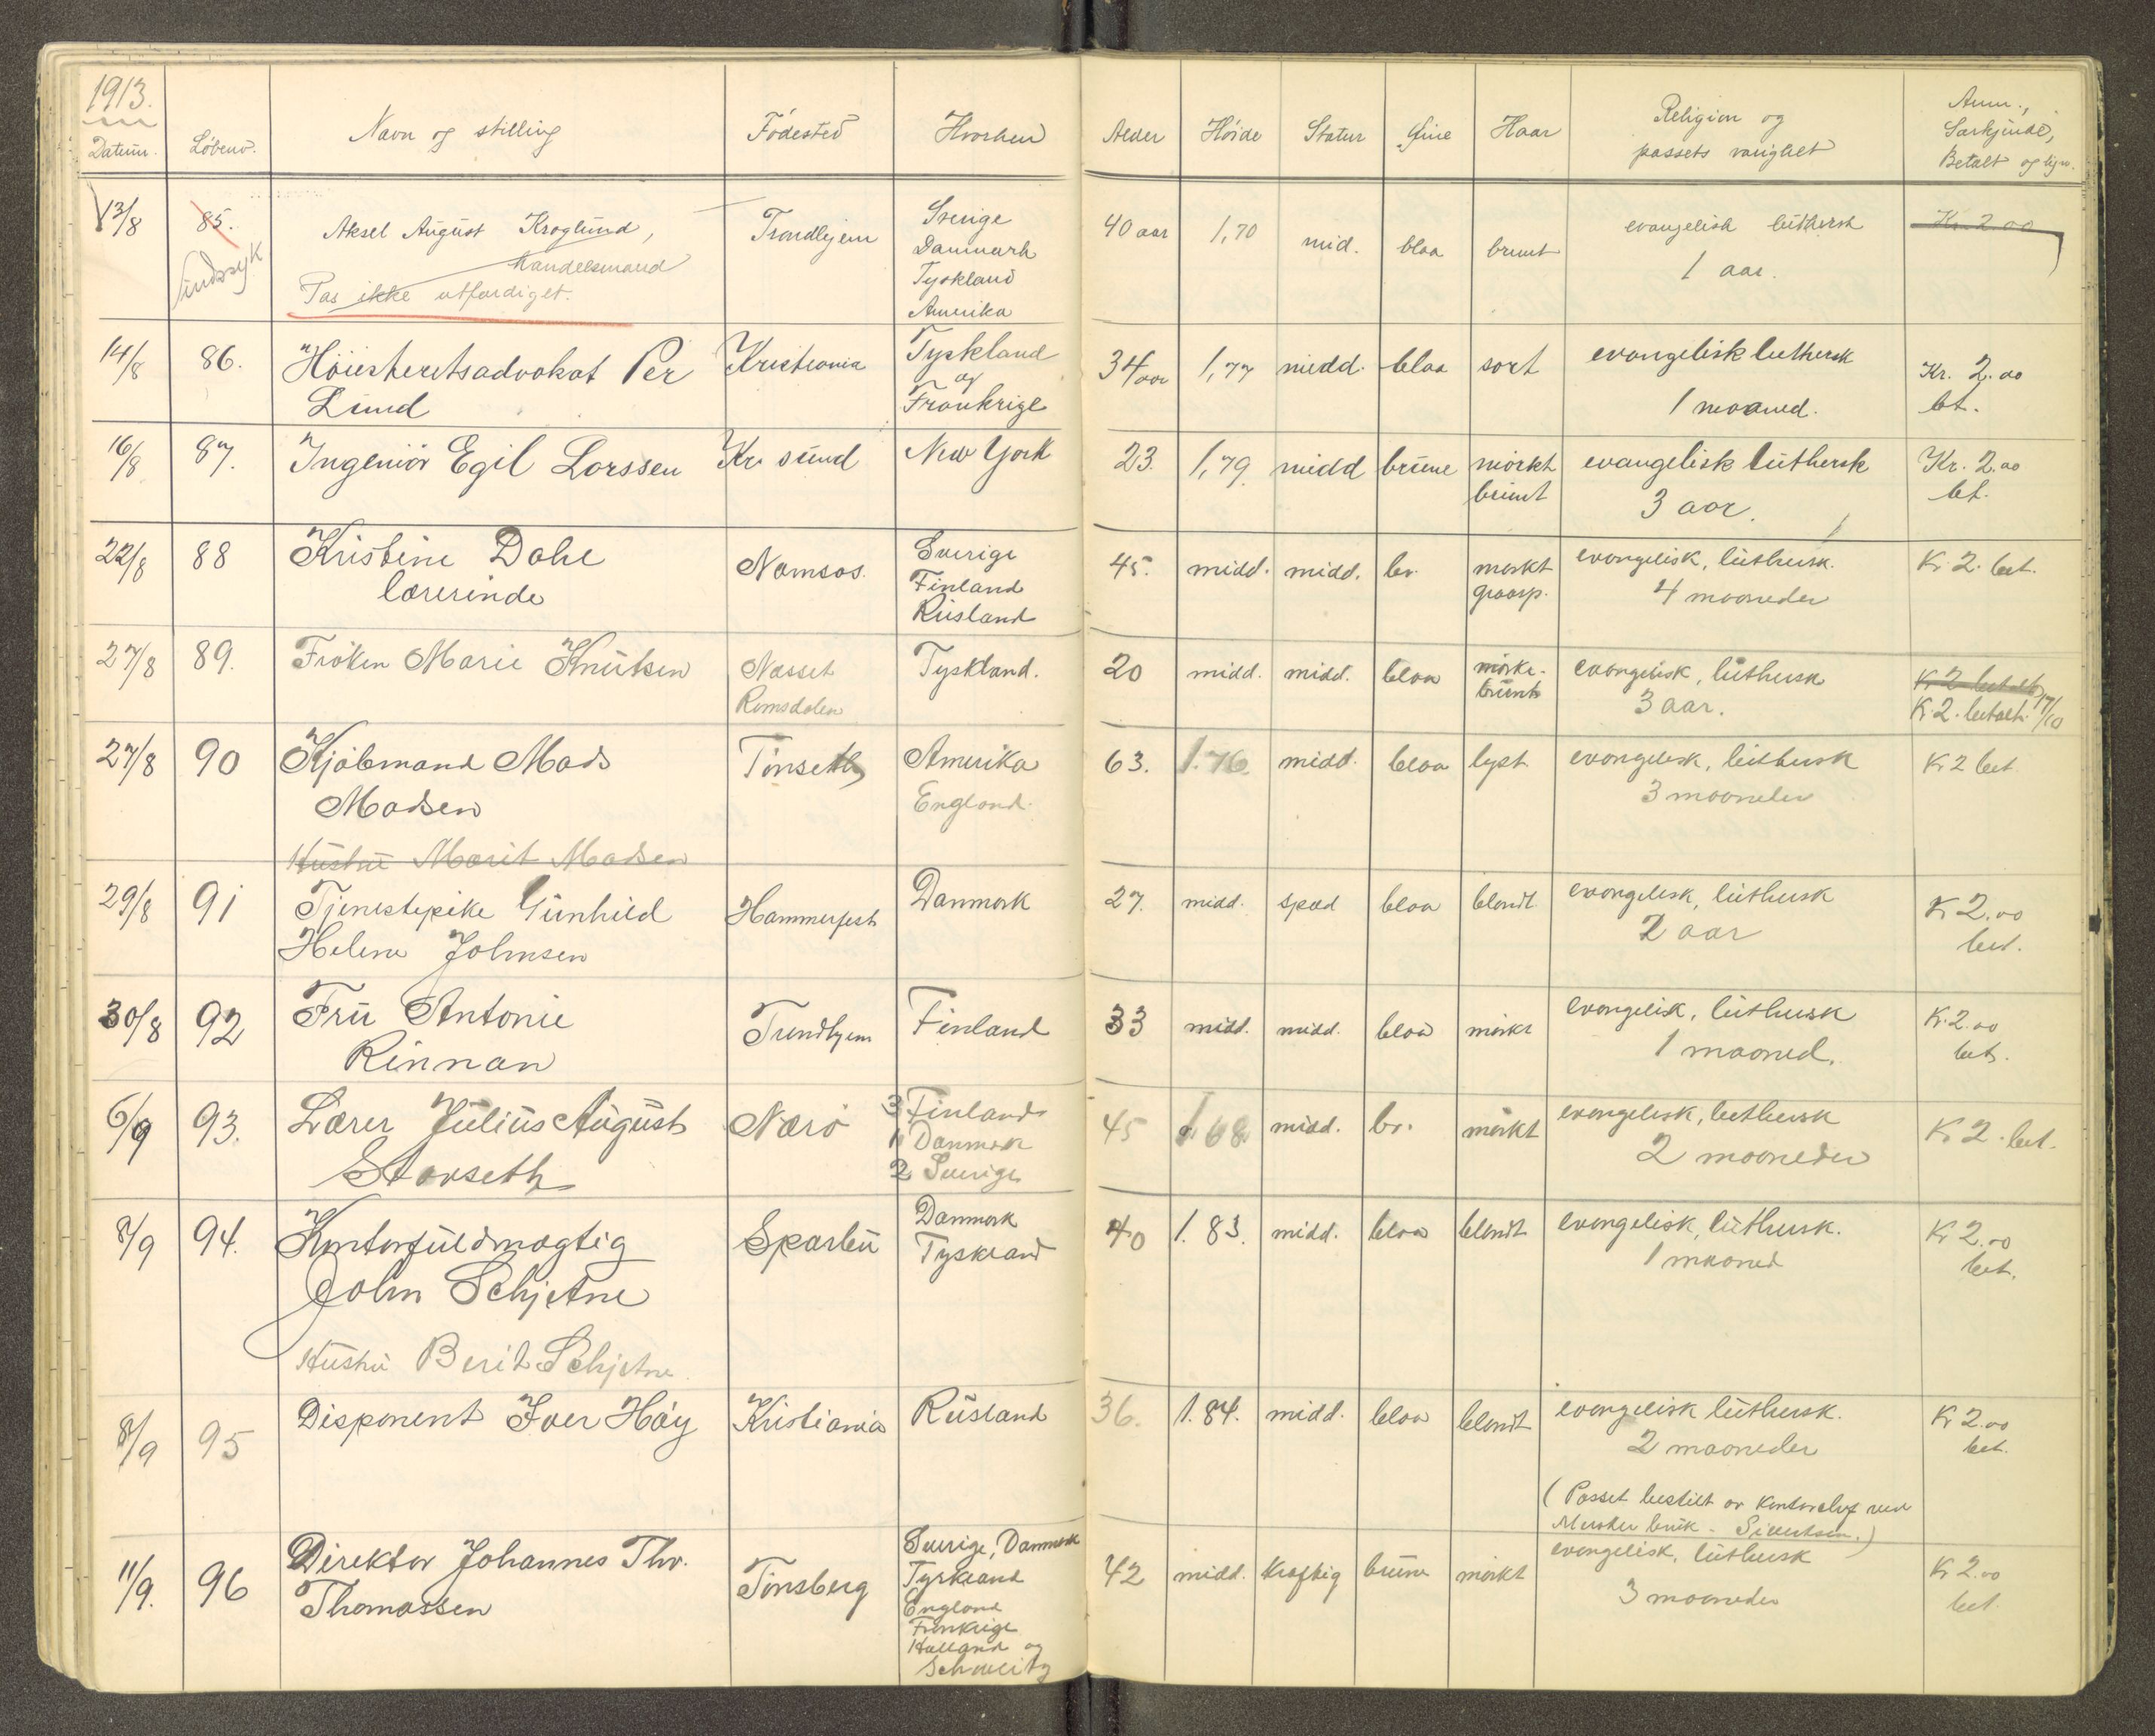 1913.
Datum. Løbenr. Navn og stilling Fødested Hvorhen Alder Høide Statur Øine Haar Religion og passets varighet Anm., Særkjende, Betalt og lign.
13/8 85. Aksel August Kroglund, Trondhjem Sverige 40 aar 1,70 mid. blaa brunt evangelisk luthersk Kr. 2.00
Sindssyk handelsmand Danmark 1 aar.
Pas ikke utfærdiget. Tyskland
Amerika
14/8 86. Höiesteretsadvokat Per Kristiania Tyskland 34 aar 1,77 midd. blaa sort evangelisk luthersk Kr. 2.00
Lund og Frankrige 1 maaned. bt.
16/8 87. Ingeniör Egil Larssen Kr. sund New York 23. 1,79. midd brune mörkt evangelisk luthersk Kr. 2.00
brunt 3 aar. bt.
22/8 88 Kristine Dahl Namsos. Sverige 45. midd. midd. br. mørkt evangelisk, luthersk. Kr. 2. bet.
lærerinde Finland graasp. 4 maaneder
Rusland
27/8 89. Fröken Marie Knutsen Næsset Tyskland. 20 midd. midd. blaa mörke- evangelisk, luthersk K 2 betalt
Romsdalen brunt 3 aar. K. 2. betalt. 17/10
27/8 90 Kjöbmand Mads Tönseth Amerika 63. 1.76. midd. blaa lyst evangelisk, luthersk Kr 2 bet
Madsen England. 3 maaneder
Hustru Marit Madsen
29/8 91 Tjenestepike Gunhild Hammerfest Danmark 27. midd. spæd blaa blondt evangelisk, luthersk Kr 2.00
Helene Johnsen 2 aar bet.
30/8 92 Fru Antonie Trondhjem Finland 33 midd. midd. blaa mörkt evangelisk, luthersk K. 2.00
Rinnan 1 maaned. bet.
6/9 93. Lærer Julius August Nærö 3 Finland 45 1.68. midd. br. mörkt evangelisk, luthersk Kr 2. bet.
Storseth 1 Danmark 2 maaneder
2 Sverige
8/9 94. Kontorfuldmægtig Sparbu Danmark 40 1.83. midd. blaa blondt evangelisk, luthersk. Kr 2.00
John Schjetne Tyskland 1 maaned bet.
Hustru Berit Schjetne.
8/9 95 Disponent Iver Høy Kristiania Rusland 36. 1.84. midd. blaa blondt evangelisk luthersk. Kr 2.00
2 maaneder bet.
(Passet bestilt av Kontorchef ved
Meraker bruk. Sivertsen.)
11/9. 96 Direktør Johannes Thv. Tönsberg Sverige, Danmark 42 midd. kraftig brune mörkt evangelisk, luthersk Kr 2.00
Thomassen Tyskland 3 maaneder bet.
England
Frankrige
Holland og
Schweitz